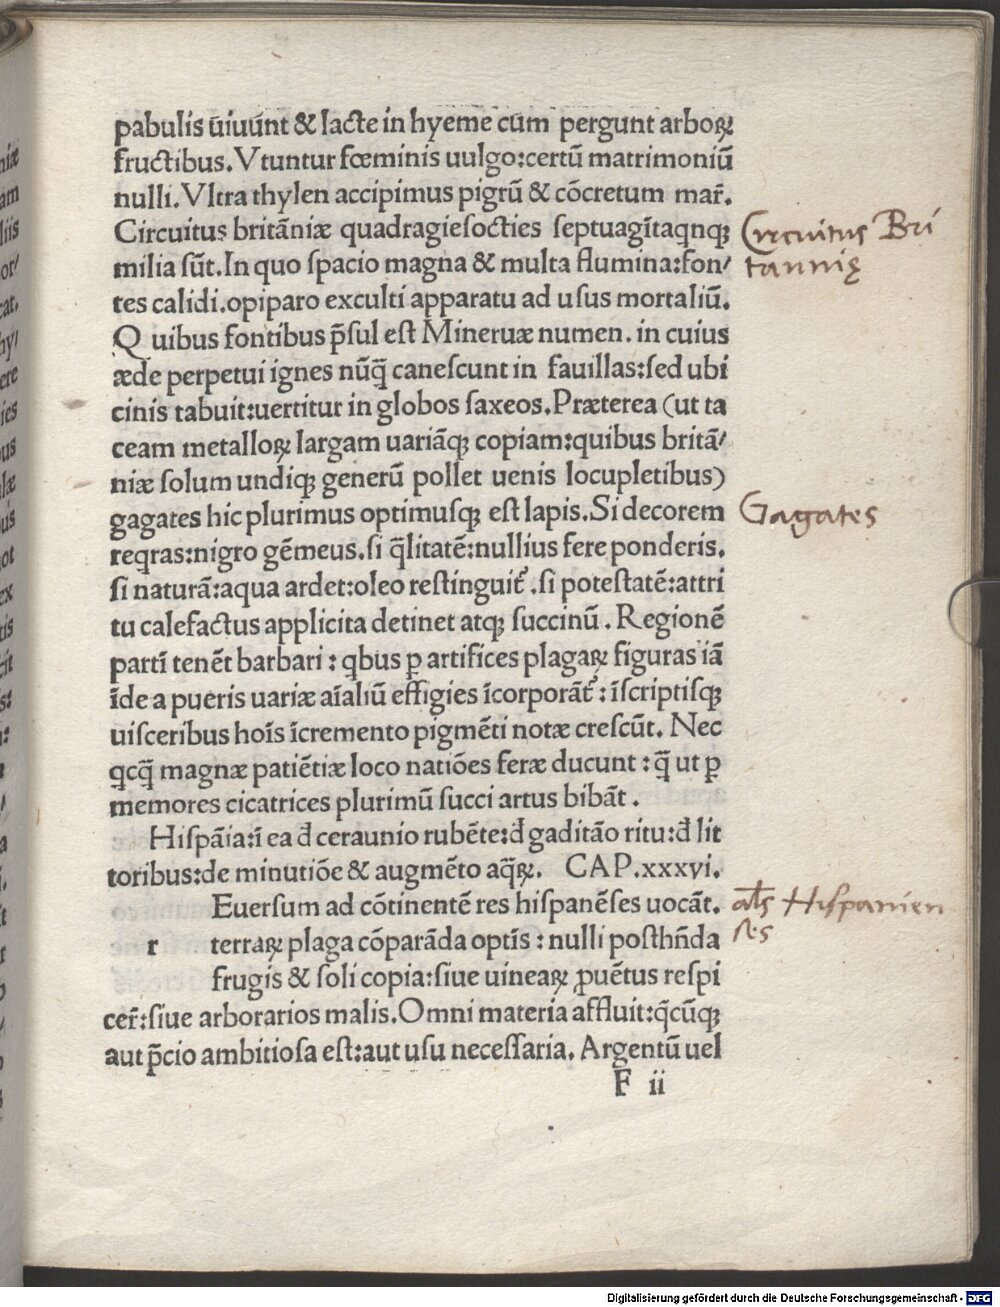 pabulis ūiuūnt & lacte in hyeme cum pergunt arboꝝ
fructibus. Vtuntur fœminis uulgo: certū matrimoniū
nulli. Vltra thylen accipimus pigrū & cōcretum mar̄.
Circuitus britāniæ quadragiesocties septuagītaqnqꝫ
milia sūt. In quo spacio magna & multa flumina: fon/
tes calidi. opiparo exculti apparatu ad usus mortaliū.
Q uibus fontibus p̄sul est Mineruæ numen. in cuius
æde perpetui ignes nūq̄ canescunt in fauillas: sed ubi
cinis tabuit: uertitur in globos saxeos. Præterea (ut ta
ceam metalloꝝ largam uariāqꝫ copiam: quibus britā/
niæ solum undiqꝫ generū pollet uenis locupletibus)
gagates hic plurimus optimusqꝫ est lapis. Si decorem
reqras: nigro gēmeus. si q̄litatē: nullius fere ponderis.
si naturā: aqua ardet: oleo restinguit᷑. si potestatē: attri
tu calefactus applicita detinet atqꝫ succinū. Regionē
partī tenēt barbari: qbus ꝑ artifices plagaꝝ figuras iā
īde a pueris uariæ aīaliū effigies īcorporāt᷑: īscriptisqꝫ
uisceribus hoīs īcremento pigmēti notæ crescūt. Nec
qcq̄ magnæ patiētiæ loco natiōes feræ ducunt: q̄ ut ꝑ
memores cicatrices plurimū succi artus bibāt.
Hispāia: ī ea đ ceraunio rubēte: đ gaditāo ritu: đ lit
toribus: de minutiōe & augmēto aq̄ꝝ. CAP. xxxvi.
Euersum ad cōtinentē res hispanēses uocāt.
r terraꝝ plaga cōparāda optīs: nulli posthn̄da
frugis & soli copia: siue uineaꝝ ꝓuētus respi
cer̄: siue arborarios malis. Omni materia affluit: q̄cūqꝫ
aut p̄cio ambitiosa est: aut usu necessaria. Argentū uel
F ii
Circuitus Bri
tannię
Gagates
als Hispanien
ses
Digitalisierung gefördert durch die Deutsche Forschungsgemeinschaft - DFG